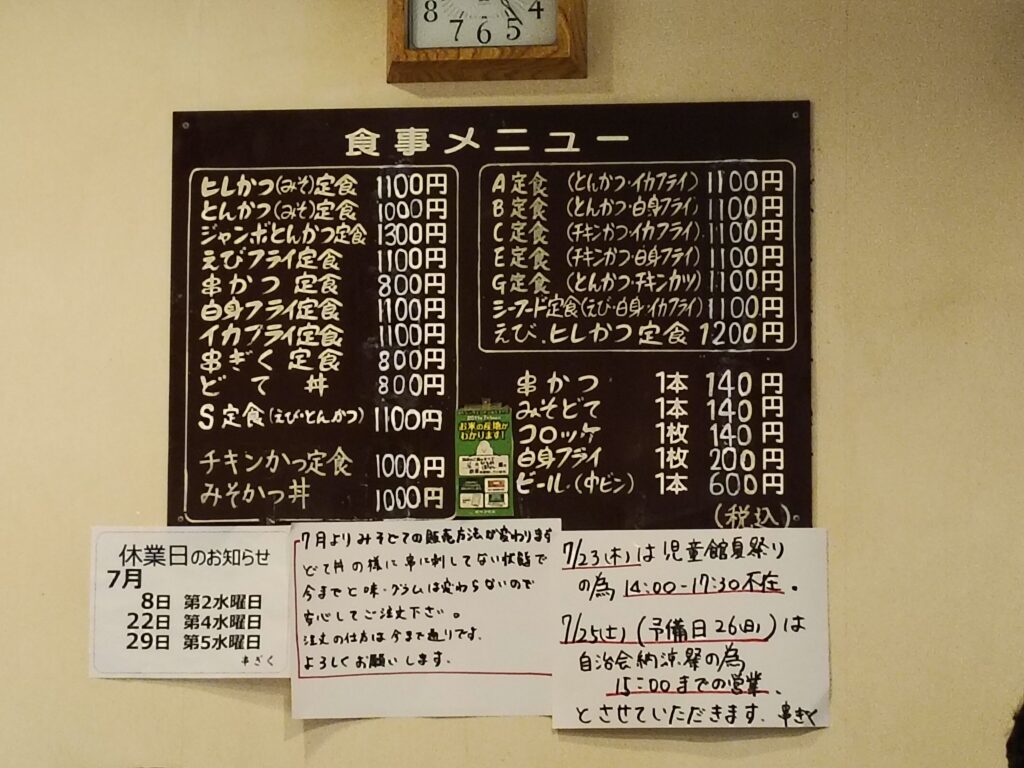 8 7 6 5 4
食事メニュー
ヒレかつ(みそ)定食 1100円
とんかつ(みそ)定食 1000円
ジャンボとんかつ定食 1300円
えびフライ定食 1100円
串かつ定食 800円
白身フライ定食 1100円
イカフライ定食 1100円
串ぎく定食 800円
どて丼 800円
S定食(えび・とんかつ) 1100円
チキンかつ定食 1000円
みそかつ丼 1000円
A定食 (とんかつ・イカフライ) 1100円
B定食 (とんかつ・白身フライ) 1100円
C定食 (チキンかつ・イカフライ) 1100円
E定食 (チキンかつ・白身フライ) 1100円
G定食 (とんかつ・チキンカツ) 1100円
シーフード定食(えび・白身・イカフライ) 1100円
えび.ヒレかつ定食 1200円
串かつ 1本 140円
みそどて 1本 140円
コロッケ 1枚 140円
白身フライ 1枚 200円
ビール・(中ビン) 1本 600円
(税込)
お米の産地が
わかります!
休業日のお知らせ
7月
8日 第2水曜日
22日 第4水曜日
29日 第5水曜日
串ぎく
7月よりみそどての販売方法が変わります
どて丼の様に串に刺してない状態で
今までと味・グラムは変わらないので
安心してご注文下さい。
注文の仕方は今まで通りです。
よろしくお願いします。
7/23(木)は児童館夏祭り
の為 14:00-17:30不在。
7/25(土)(予備日26(日))は
自治会納涼祭の為
15:00までの営業、
とさせていただきます、串ぎく